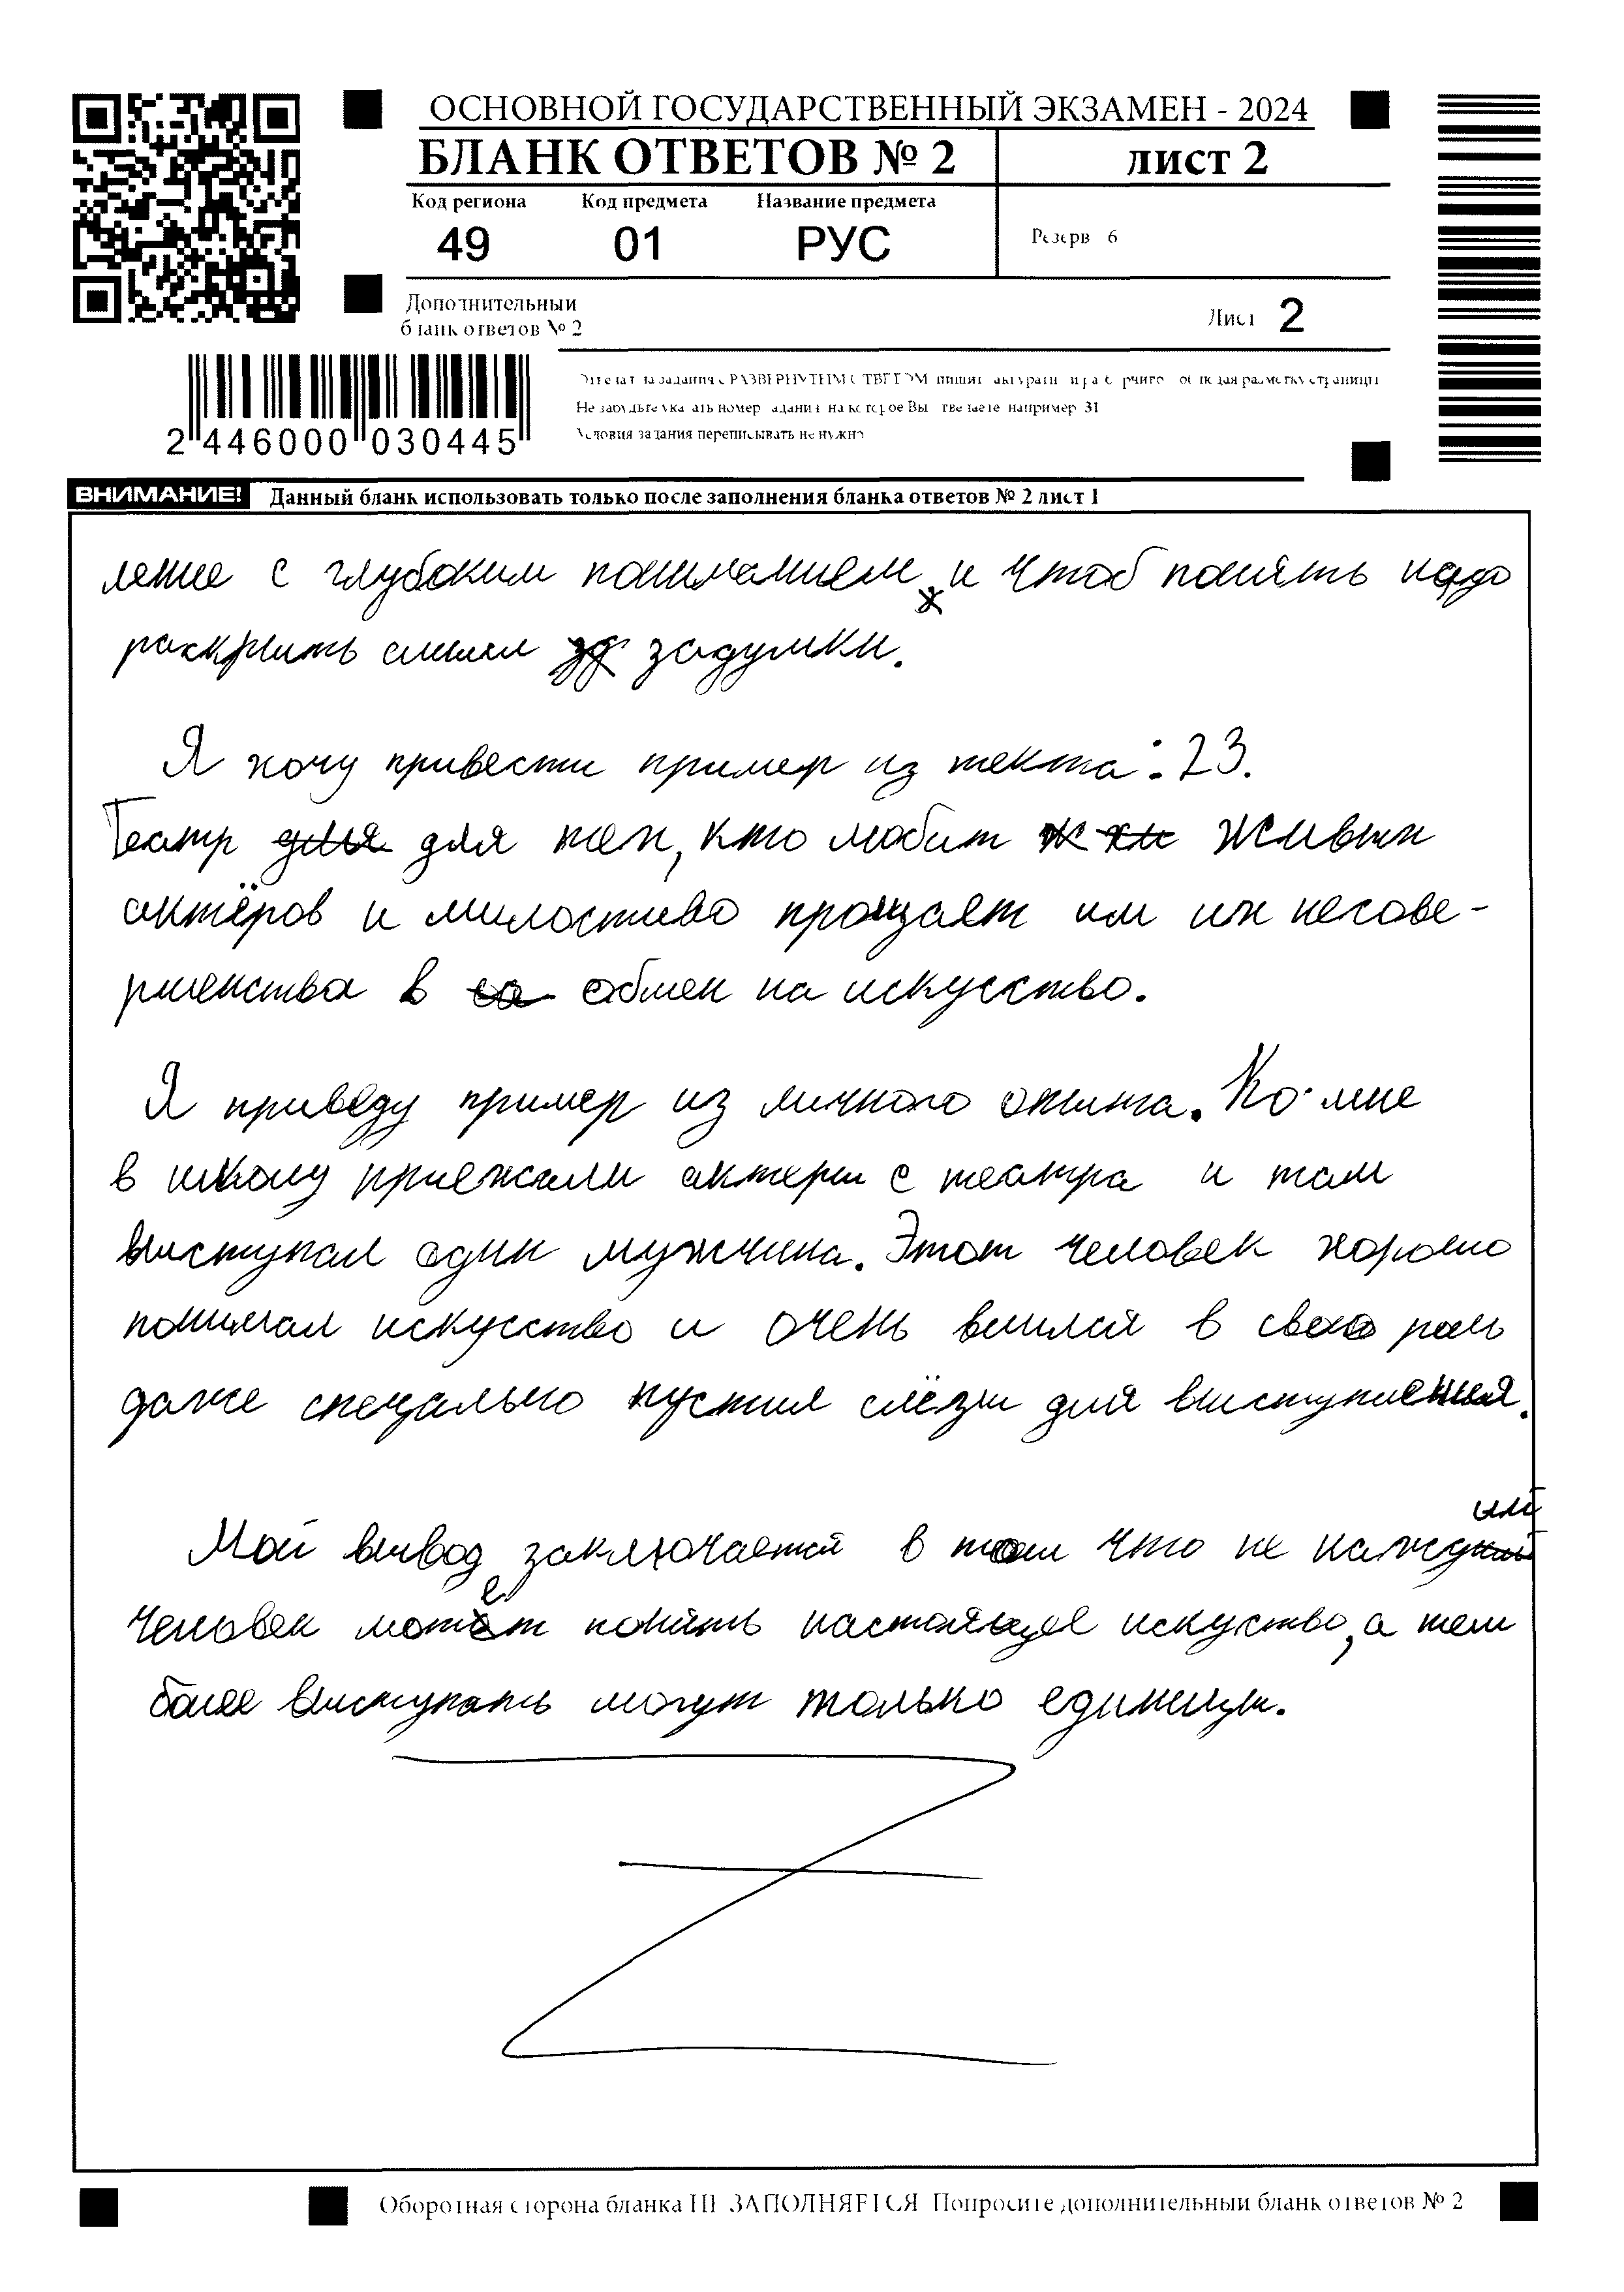 ОСНОВНОЙ ГОСУДАРСТВЕННЫЙ ЭКЗАМЕН - 2024
БЛАНК ОТВЕТОВ № 2
лист 2
Код региона Код предмета Название предмета
49 01 РУС
Резерв 6
Дополнительный
бланк ответов № 2
Лист 2
2 446000 030445
Не забудьте указать номер задания на которое Вы отвечаете например 31
Условия задания переписывать не нужно
ВНИМАНИЕ! Данный бланк использовать только после заполнения бланка ответов № 2 лист 1
ление с глубоким пониманием и чтоб понять надо
раскрыть смысл задумки.
Я хочу привести пример из текта: 23.
Театр для тех, кто любит живых
актёров и милостиво прощает им их несове-
ршенства в обмен на искусство.
Я приведу пример из личного опыта. Ко мне
в школу приежали актеры с театра и там
выступал один мужчина. Этот человек хорошо
понимал искусство и очень вжился в свою роль
даже спецально пустил слёзы для выступления.
Мой вывод заключается в том что не каждый
человек может понять настоящее искуство, а тем
более выступать могут только единицы.
Оборотная сторона бланка НЕ ЗАПОЛНЯЕТСЯ Попросите дополнительный бланк ответов № 2